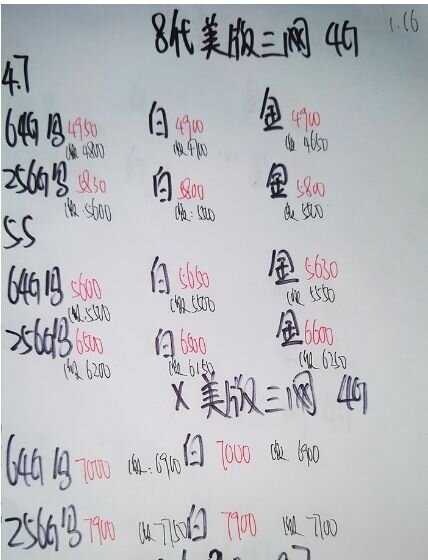 8代美版三网 4G 1.16
4.7
64G 黑 4950 白 4900 金 4900
收 4800 收 4700 收 4650
256G 黑 5830 白 5800 金 5800
收:5600 收:5500 收 5500
5.5
64G 黑 5600 白 5650 金 5630
收 5500 收 5500 收 5550
256G 黑 6500 白 6500 金 6600
收 6200 收 6150 收 6250
X 美版三网 4G
64G 黑 7000 收:6900 白 7000 收 6900
256G 黑 7900 收 7750 白 7900 收 7700